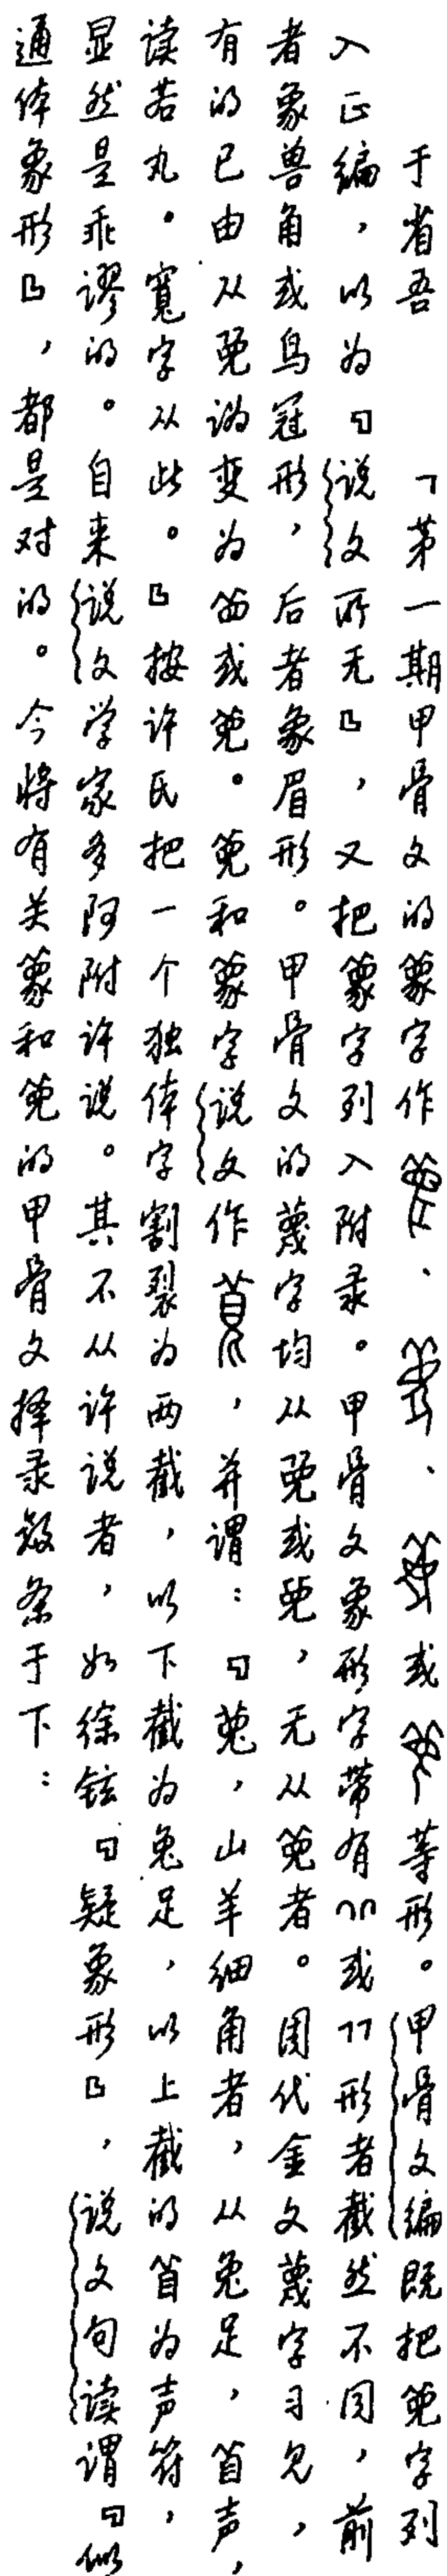 于省吾 「第一期甲骨文的字作、、或等形。甲骨文编既把萈字列
入正编,以为『说文所无』,又把字列入附录。甲骨文象形字带有或形者截然不同,前
者象兽角或鸟冠形,后者象眉形。甲骨文的蔑字均从或,无从萈者。周代金文蔑字习见,
有的已由从讹变为或萈。萈和字说文作,并谓:『萈,山羊细角者,从兔足,苜声,
读若丸。寬字从此。』按许氏把一个独体字割裂为两截,以下截为兔足,以上截的苜为声符,
显然是乖谬的。自来说文学家多阿附许说。其不从许说者,如徐铉『疑象形』,说文句读谓『似
通体象形』,都是对的。今将有关和萈的甲骨文择录数条于下: